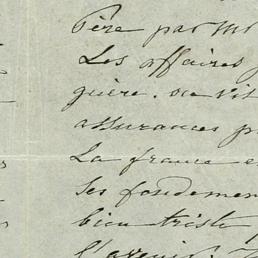 Père par Mr
Les affaires
guère. on vit
assurances p
La france e
ses fondemen
bien triste
l'avenir.